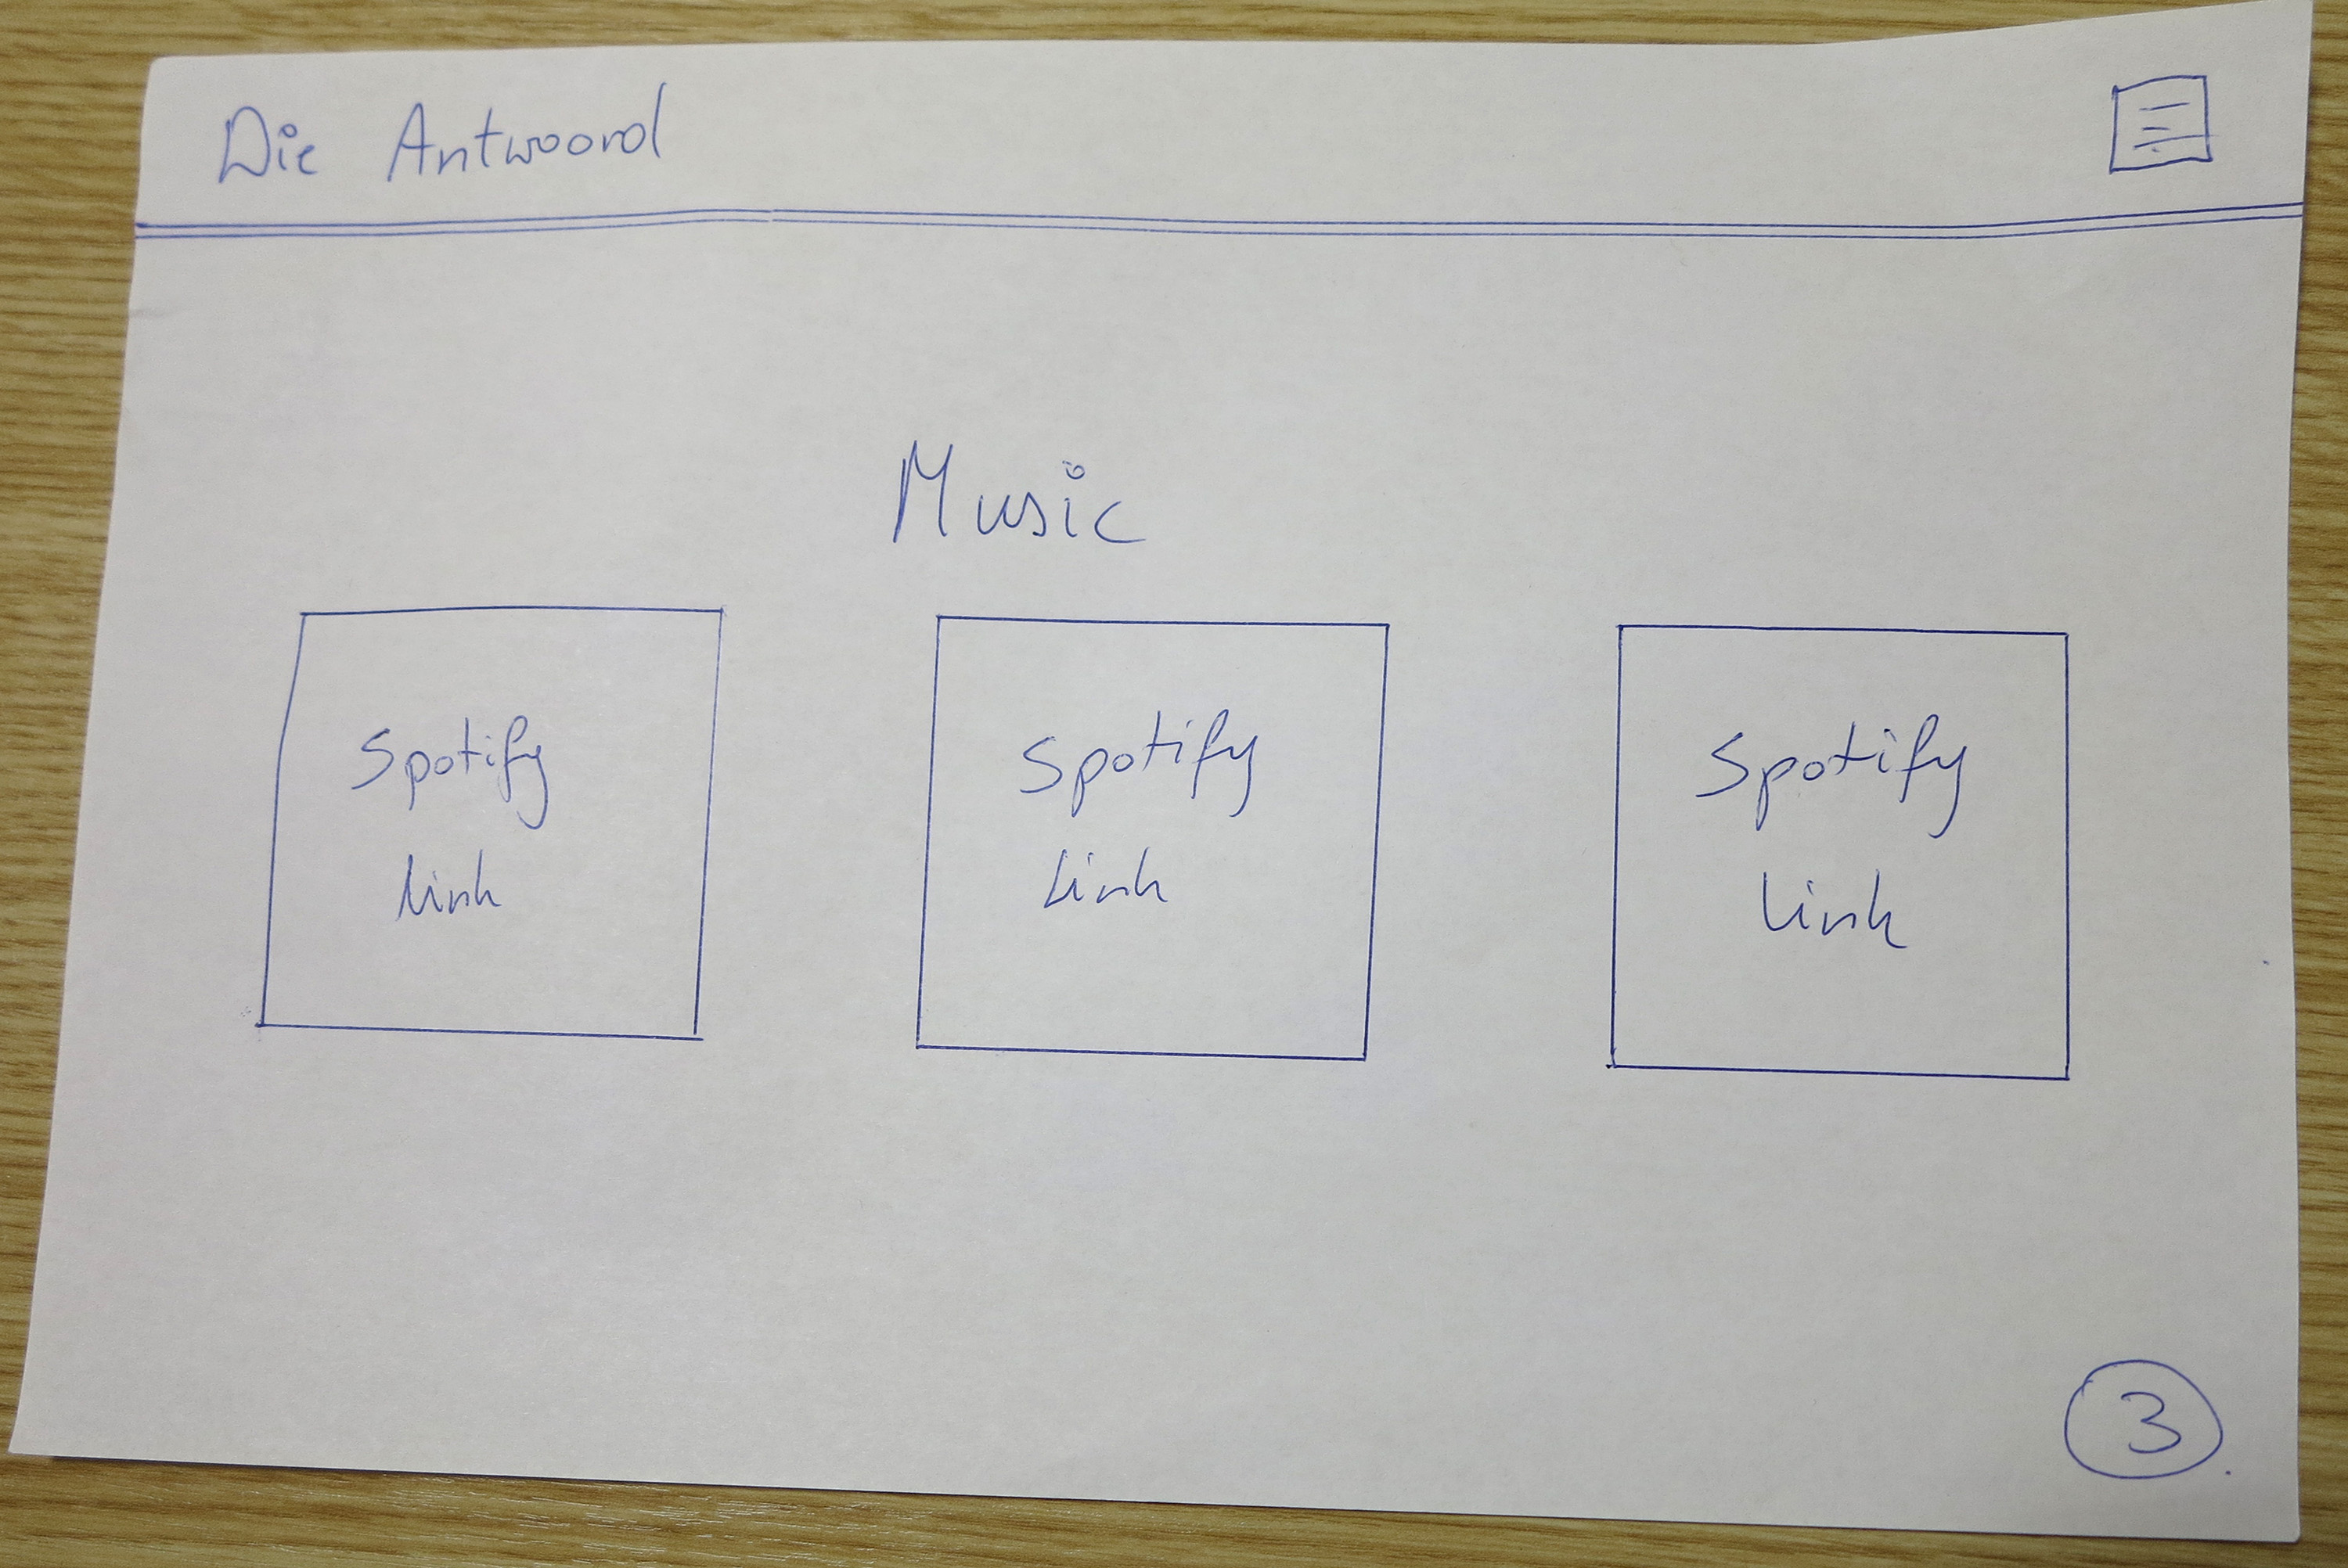 Die Antwoord
Music
Spotify
link
Spotify
Link
Spotify
Link
3